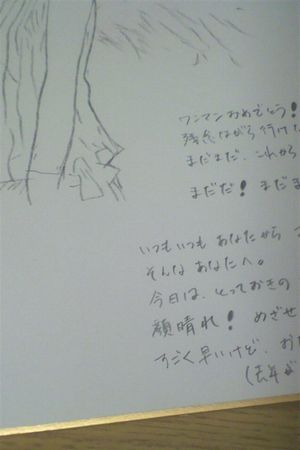 ワンマンおめでとう!
残念ながら行けな
まだまだ、これから
まだだ! まだま
いつもいつも あなたから
そんな あなたへ。
今日は、とっておきの
顔晴れ! めざせ
すごく早いけど、お
(去年が